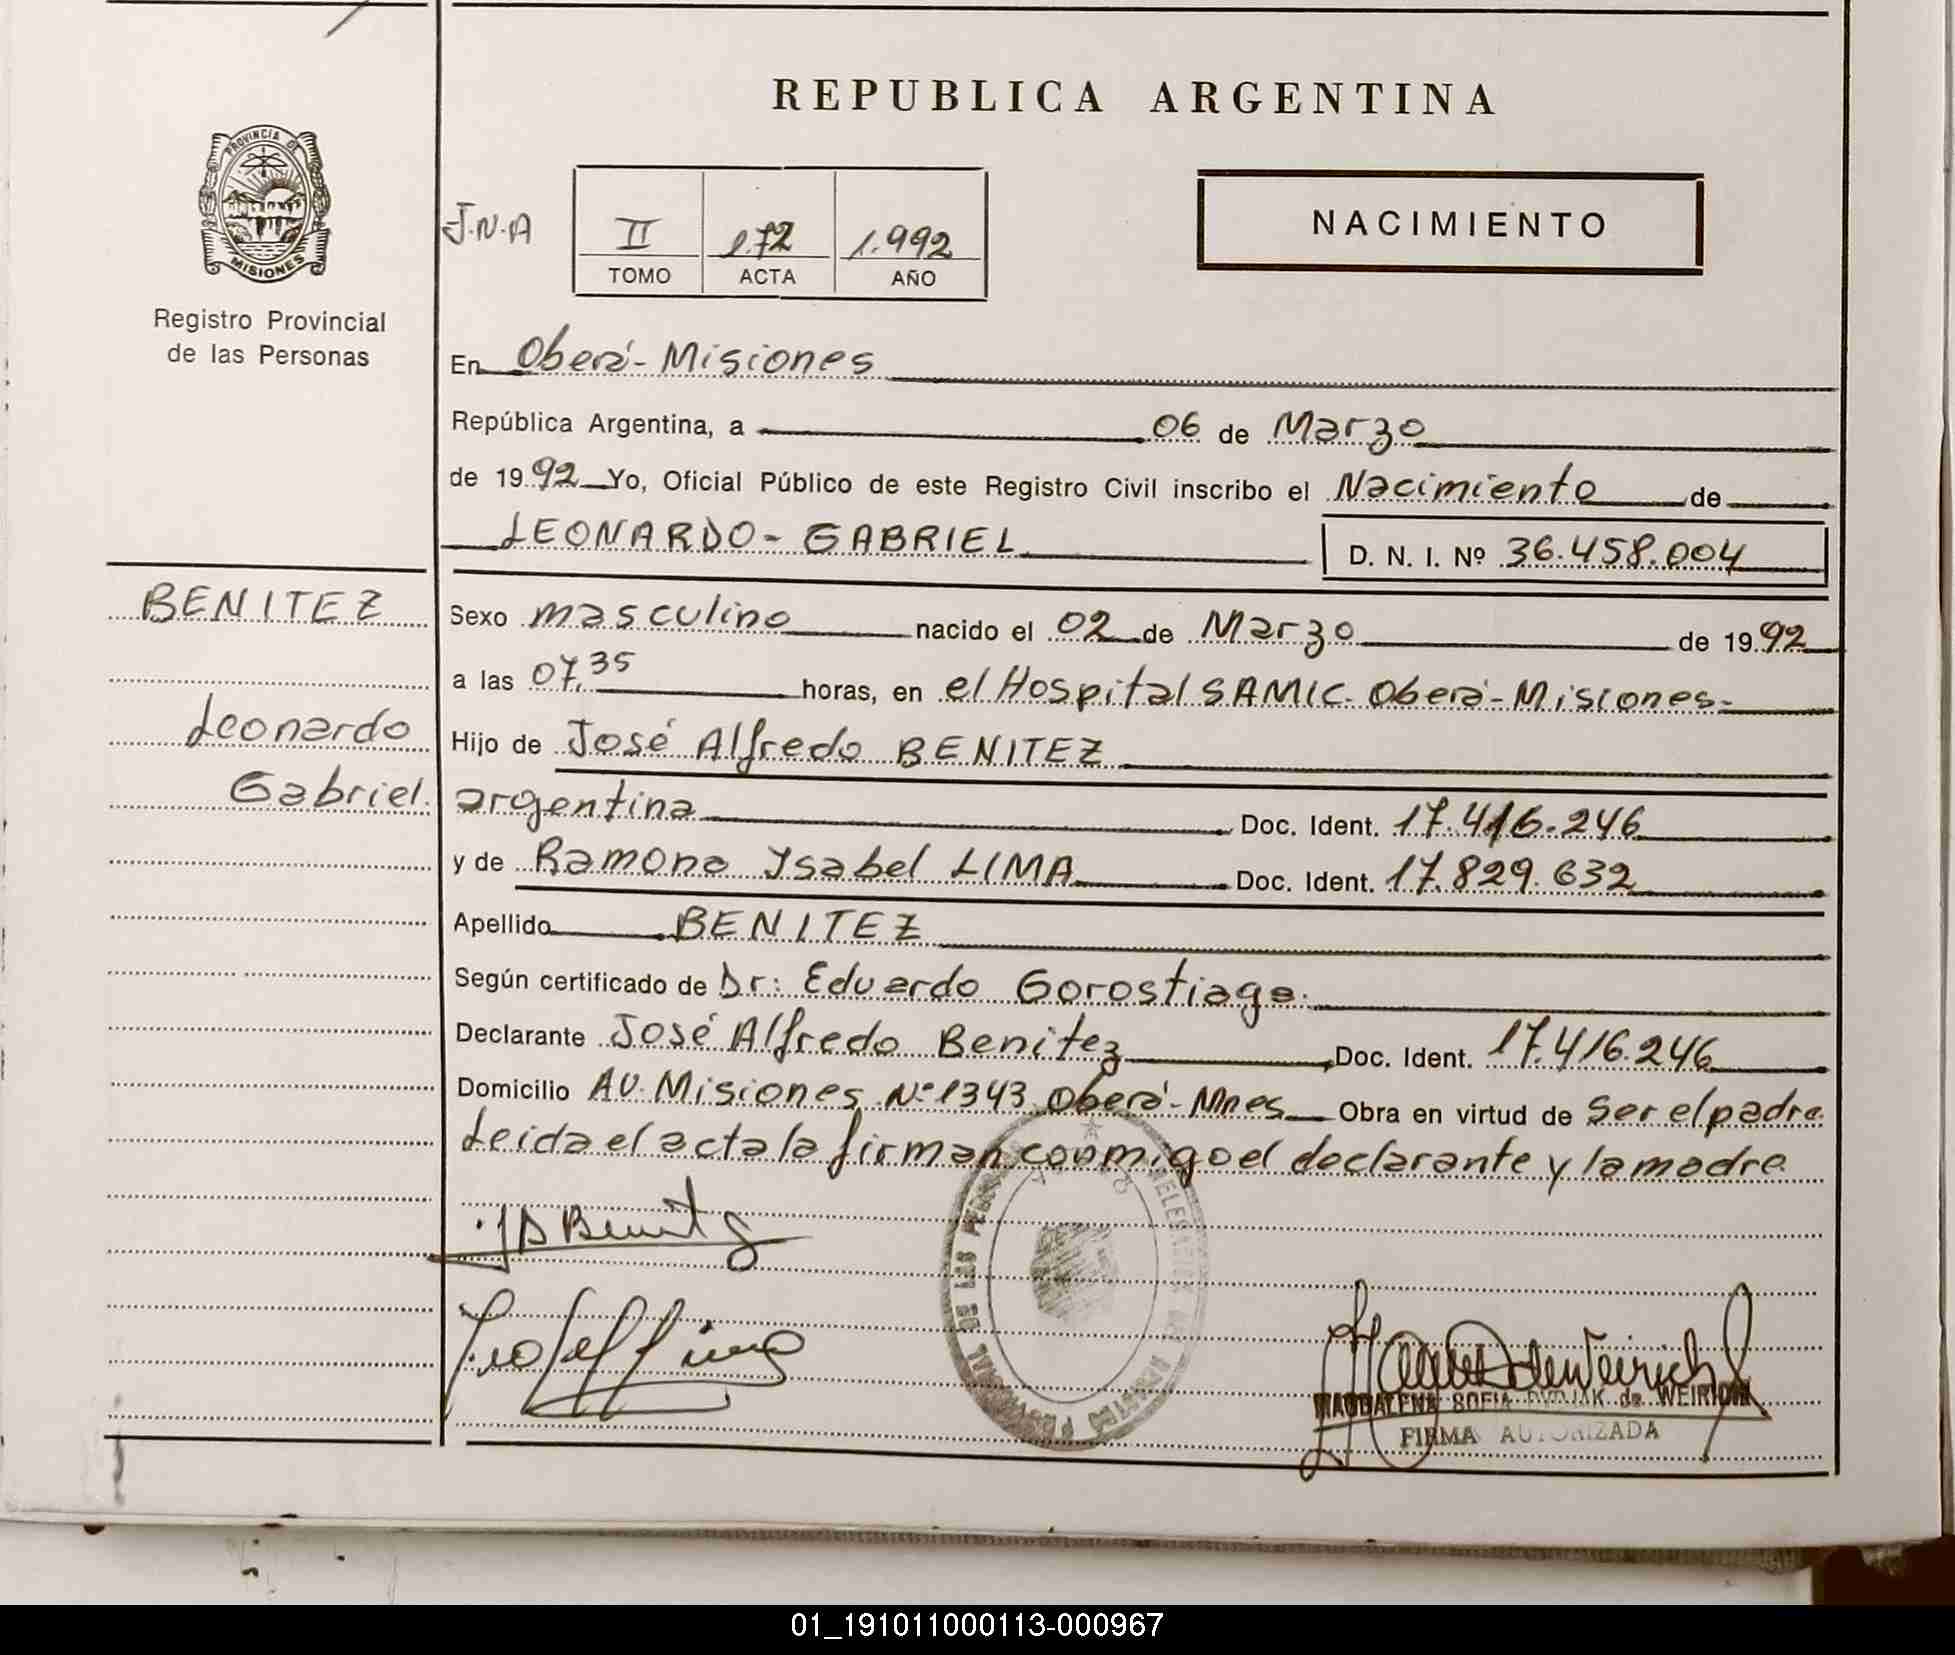 REPUBLICA ARGENTINA
PROVINCIA DE
MISIONES
Registro Provincial
de las Personas
J.N.A
II 172 1.992
TOMO ACTA AÑO
NACIMIENTO
En Oberá-Misiones
República Argentina, a 06 de Marzo
de 1992 Yo, Oficial Público de este Registro Civil inscribo el Nacimiento de
LEONARDO-GABRIEL D. N. I. Nº 36.458.004
BENITEZ
Leonardo
Gabriel.
Sexo masculino nacido el 02 de Marzo de 1992
a las 07,35 horas, en el Hospital SAMIC. Oberá-Misiones-
Hijo de José Alfredo BENITEZ
argentina Doc. Ident. 17.416.246
y de Ramona Ysabel LIMA Doc. Ident. 17.829.632
Apellido BENITEZ
Según certificado de Dr: Eduardo Gorostiaga.
Declarante José Alfredo Benitez Doc. Ident. 17.416.246
Domicilio AV. Misiones Nº 1343 Oberá-Mnes Obra en virtud de Ser el padre
Leida el acta la firman conmigo el declarante y la madre
JA Benitez
DE LAS
MAGDALENA SOFIA de WEIRICH
FIRMA AUTORIZADA
01_191011000113-000967